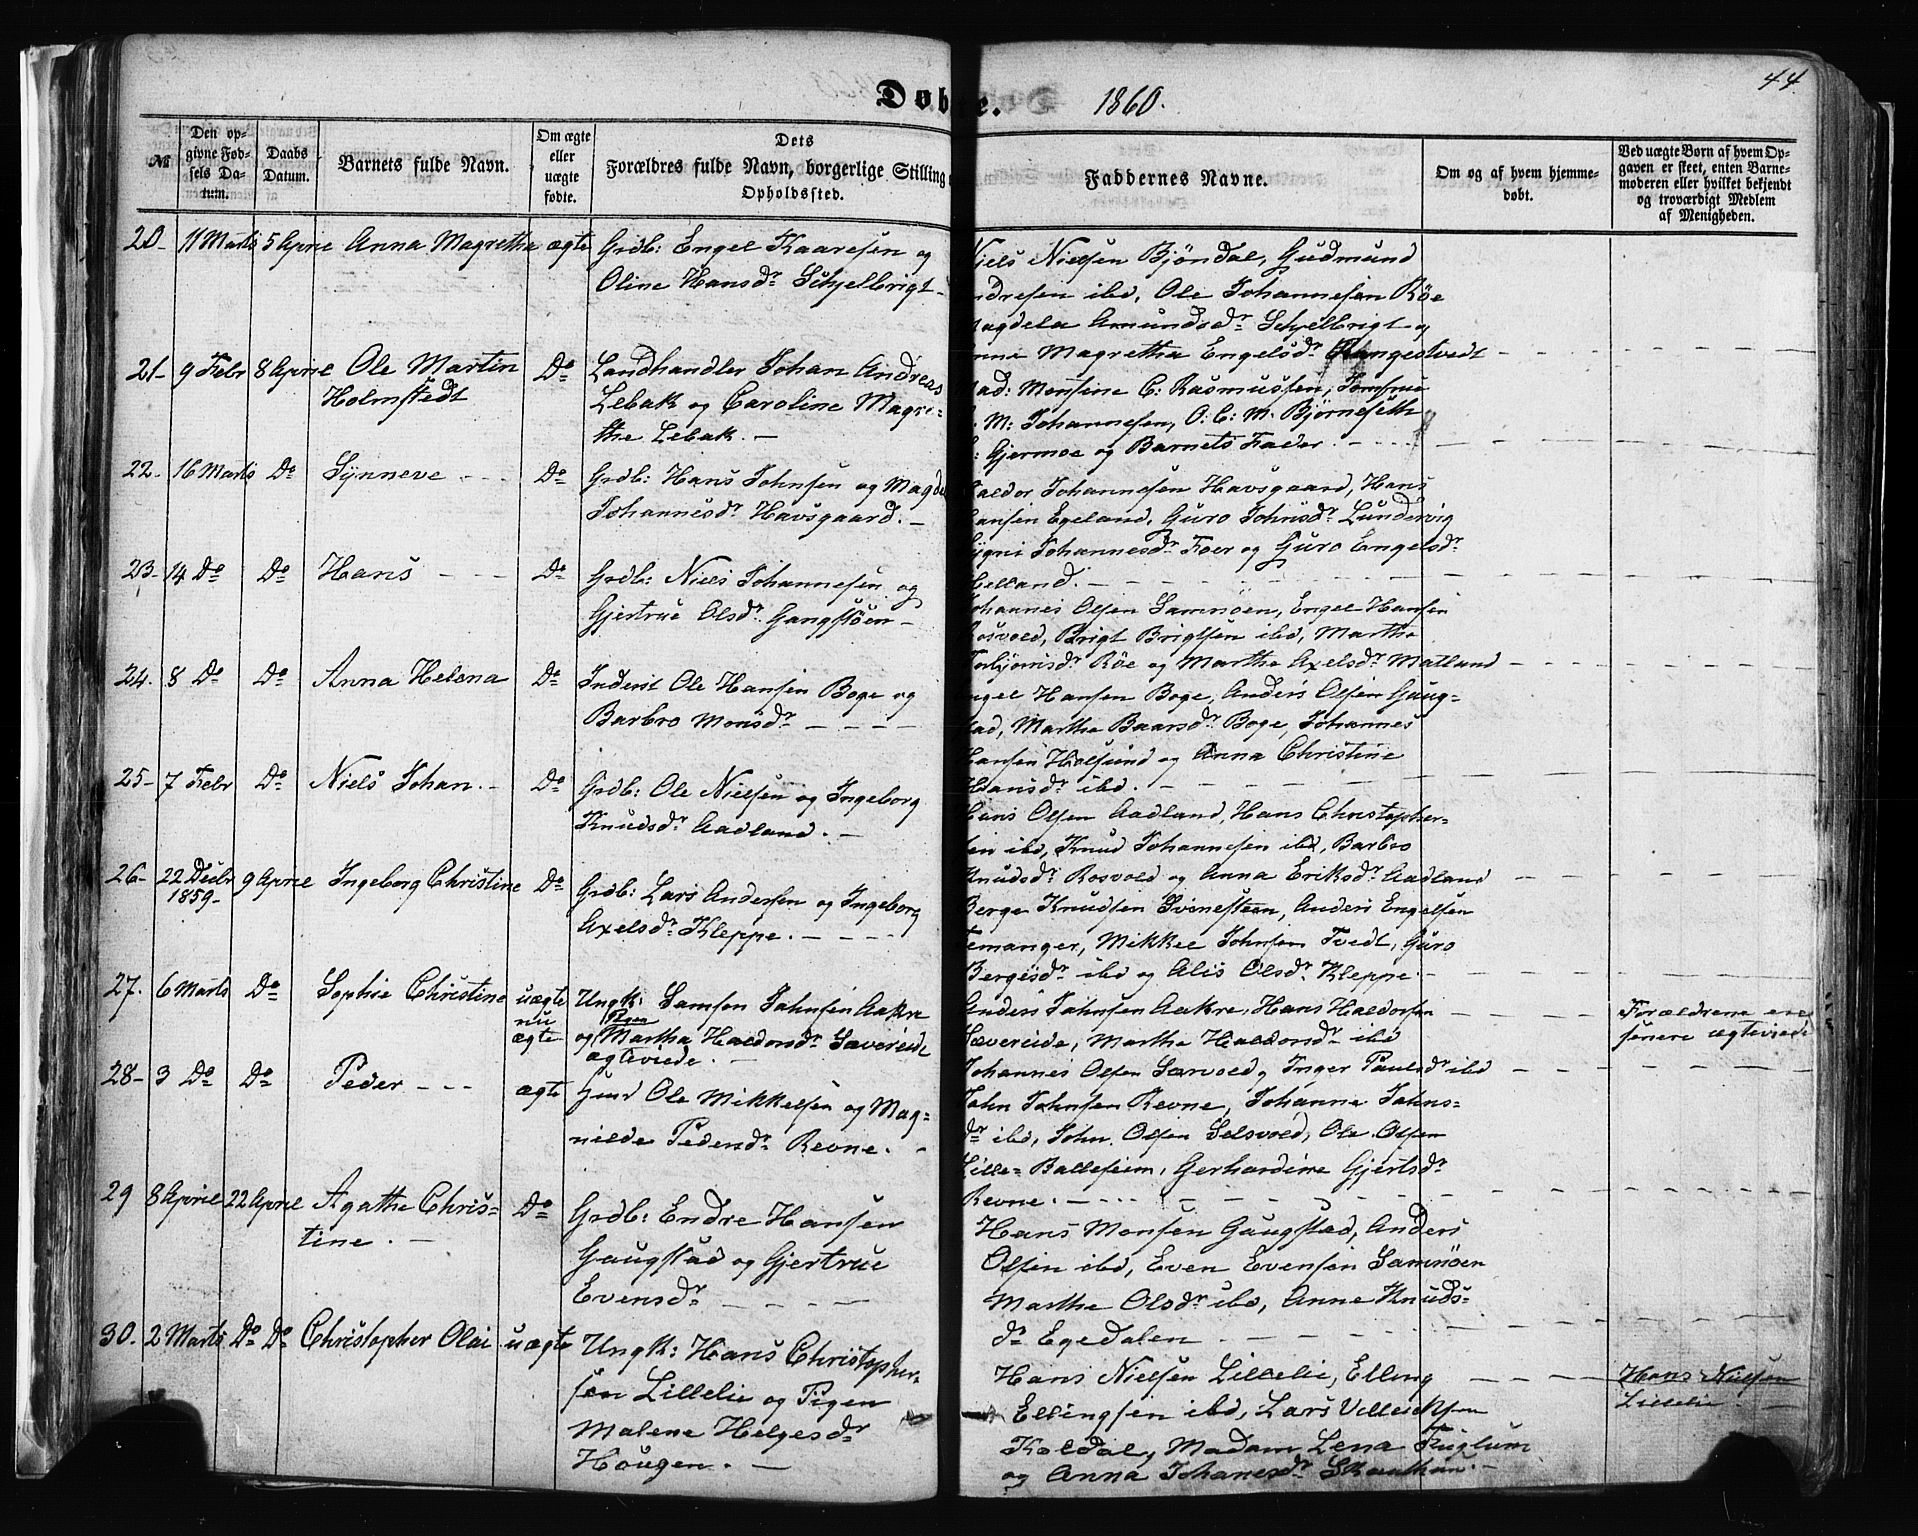 44
Døbte. 1860.
№
Den opgivne Fødsels Datum.
Daabs Datum.
Barnets fulde Navn.
Om ægte eller uægte fødte.
Dets Forældres fulde Navn, borgerlige Stilling
Opholdssted.
Faddernes Navne.
Om og af hvem hjemmedøbt.
Ved uægte Børn af hvem Opgaven er skeet, enten Barnemoderen eller hvilket bekjendt og troværdigt Medlem af Menigheden.
20- 11 Marts 5 April Anna Magretha ægte Grdb: Engel Kaaresen og
Oline Hansdr Schjelbrigt -
Niels Nielsen Bjöndal, Gudmund
Andresen ibd, Ole Johannesen Röe
Magdela Amundsdr Schjelbrigt og
Anna Magretha Engelsdr
21- 9 Febr 8 April Ole Martin
Holmstedt
Do Landhandler Johan Andreas
Lebak og Caroline Magre-
the Lebak. -
Mad: Monsine C: Rasmussen, Jomfrue
M: Johannesen, O: C: M: Björneseth
Gjermoe og Barnets Fader. -
22. 16 Marts Do Synneve - - Do Grdb: Hans Johnsen og Magde
Johannesdr Havsgaard. -
Haldor Johannesen Havsgaard, Hans
Hansen Egeland, Guro Johnsdr Lundervig
Johannesdr Foer og Guro Engelsdr
Helland. -
23- 14 Do Do Hans - - - Do Grdb: Niels Johannesen og
Gjertrue Olsdr Gangstöen -
Johannes Olsen Samnöen, Engel Hansen
Rosvold, Brigt Brigtsen ibd, Martha
Torbjörnsdr Röe og Marthe Axelsdr Matland
24. 8 Do Do Anna Helena Do Inderst Ole Hansen Boge og
Barbro Monsdr - - - -
Engel Hansen Boge, Anders Olsen Gaug-
stad, Martha Baarsdr Boge, Johannes
Hansen Holsund og Anna Christine
Hansdr ibd. -
25- 7 Febr Do Niels Johan. - Do Grdb: Ole Nielsen og Ingeborg
Knudsdr Aadland. -
Hans Olsen Aadland, Hans Christopher-
sen ibd, Knud Johannesen ibd, Barbro
Knudsdr Rosvold og Anna Eriksdr Aadland
26- 22 Decbr
1859- 9 April Ingeborg Christine Do Grdb: Lars Andersen og Ingeborg
Axelsdr Kleppe. -
Berge Knudsen Svinesteen, Anders Engelsen
Femanger, Mikkel Johnsen Tvedt, Guro
Bergesdr ibd og Alis Olsdr Kleppe. -
27. 6 Marts Do Sophie Christine uægte
nu
ægte
Ungk: Samson Johnsen Aakre
og Pigen Martha Haldorsdr Sævereide
ægteviede. -
Anders Johnsen Aakre, Hans Haldorsen
Sævereide, Marthe Haldorsdr ibd
Johannes Olsen Særvold, Inger Paulsdr ibd
Forældrene ere
senere ægteviede
28- 3 Do Do Peder - - - ægte Huusd Ole Mikkelsen og Mag-
nilde Pedersdr Revne. -
John Johnsen Revne, Johanne Johns-
dr ibd, John Olsen Selsvold, Ole Olsen
Lille= Balleseim, Gerhardine Gjertsdr
Revne. -
29 8 April 22 April Agathe Chris-
tine. - Do Grdb: Endre Hansen
Gaugstad og Gjertrue
Evensdr - - - -
Hans Monsen Gaugstad, Anders
Olsen ibd, Even Evensen Samnöen
Marthe Olsdr ibd, Anne Knuds-
dr Egedalen -
30. 2 Marts Do Do Christopher Olai uægte Ungk: Hans Christopher-
sen Lillelie og Pigen
Malene Helgesdr
Hougen. -
Hans Nielsen Lillelie, Elling
Ellingsen ibd, Lars Villeichsen
Koldal, Madam Lena Fuglum
og Anna Johanesdr
Hans Nielsen
Lillelie. -